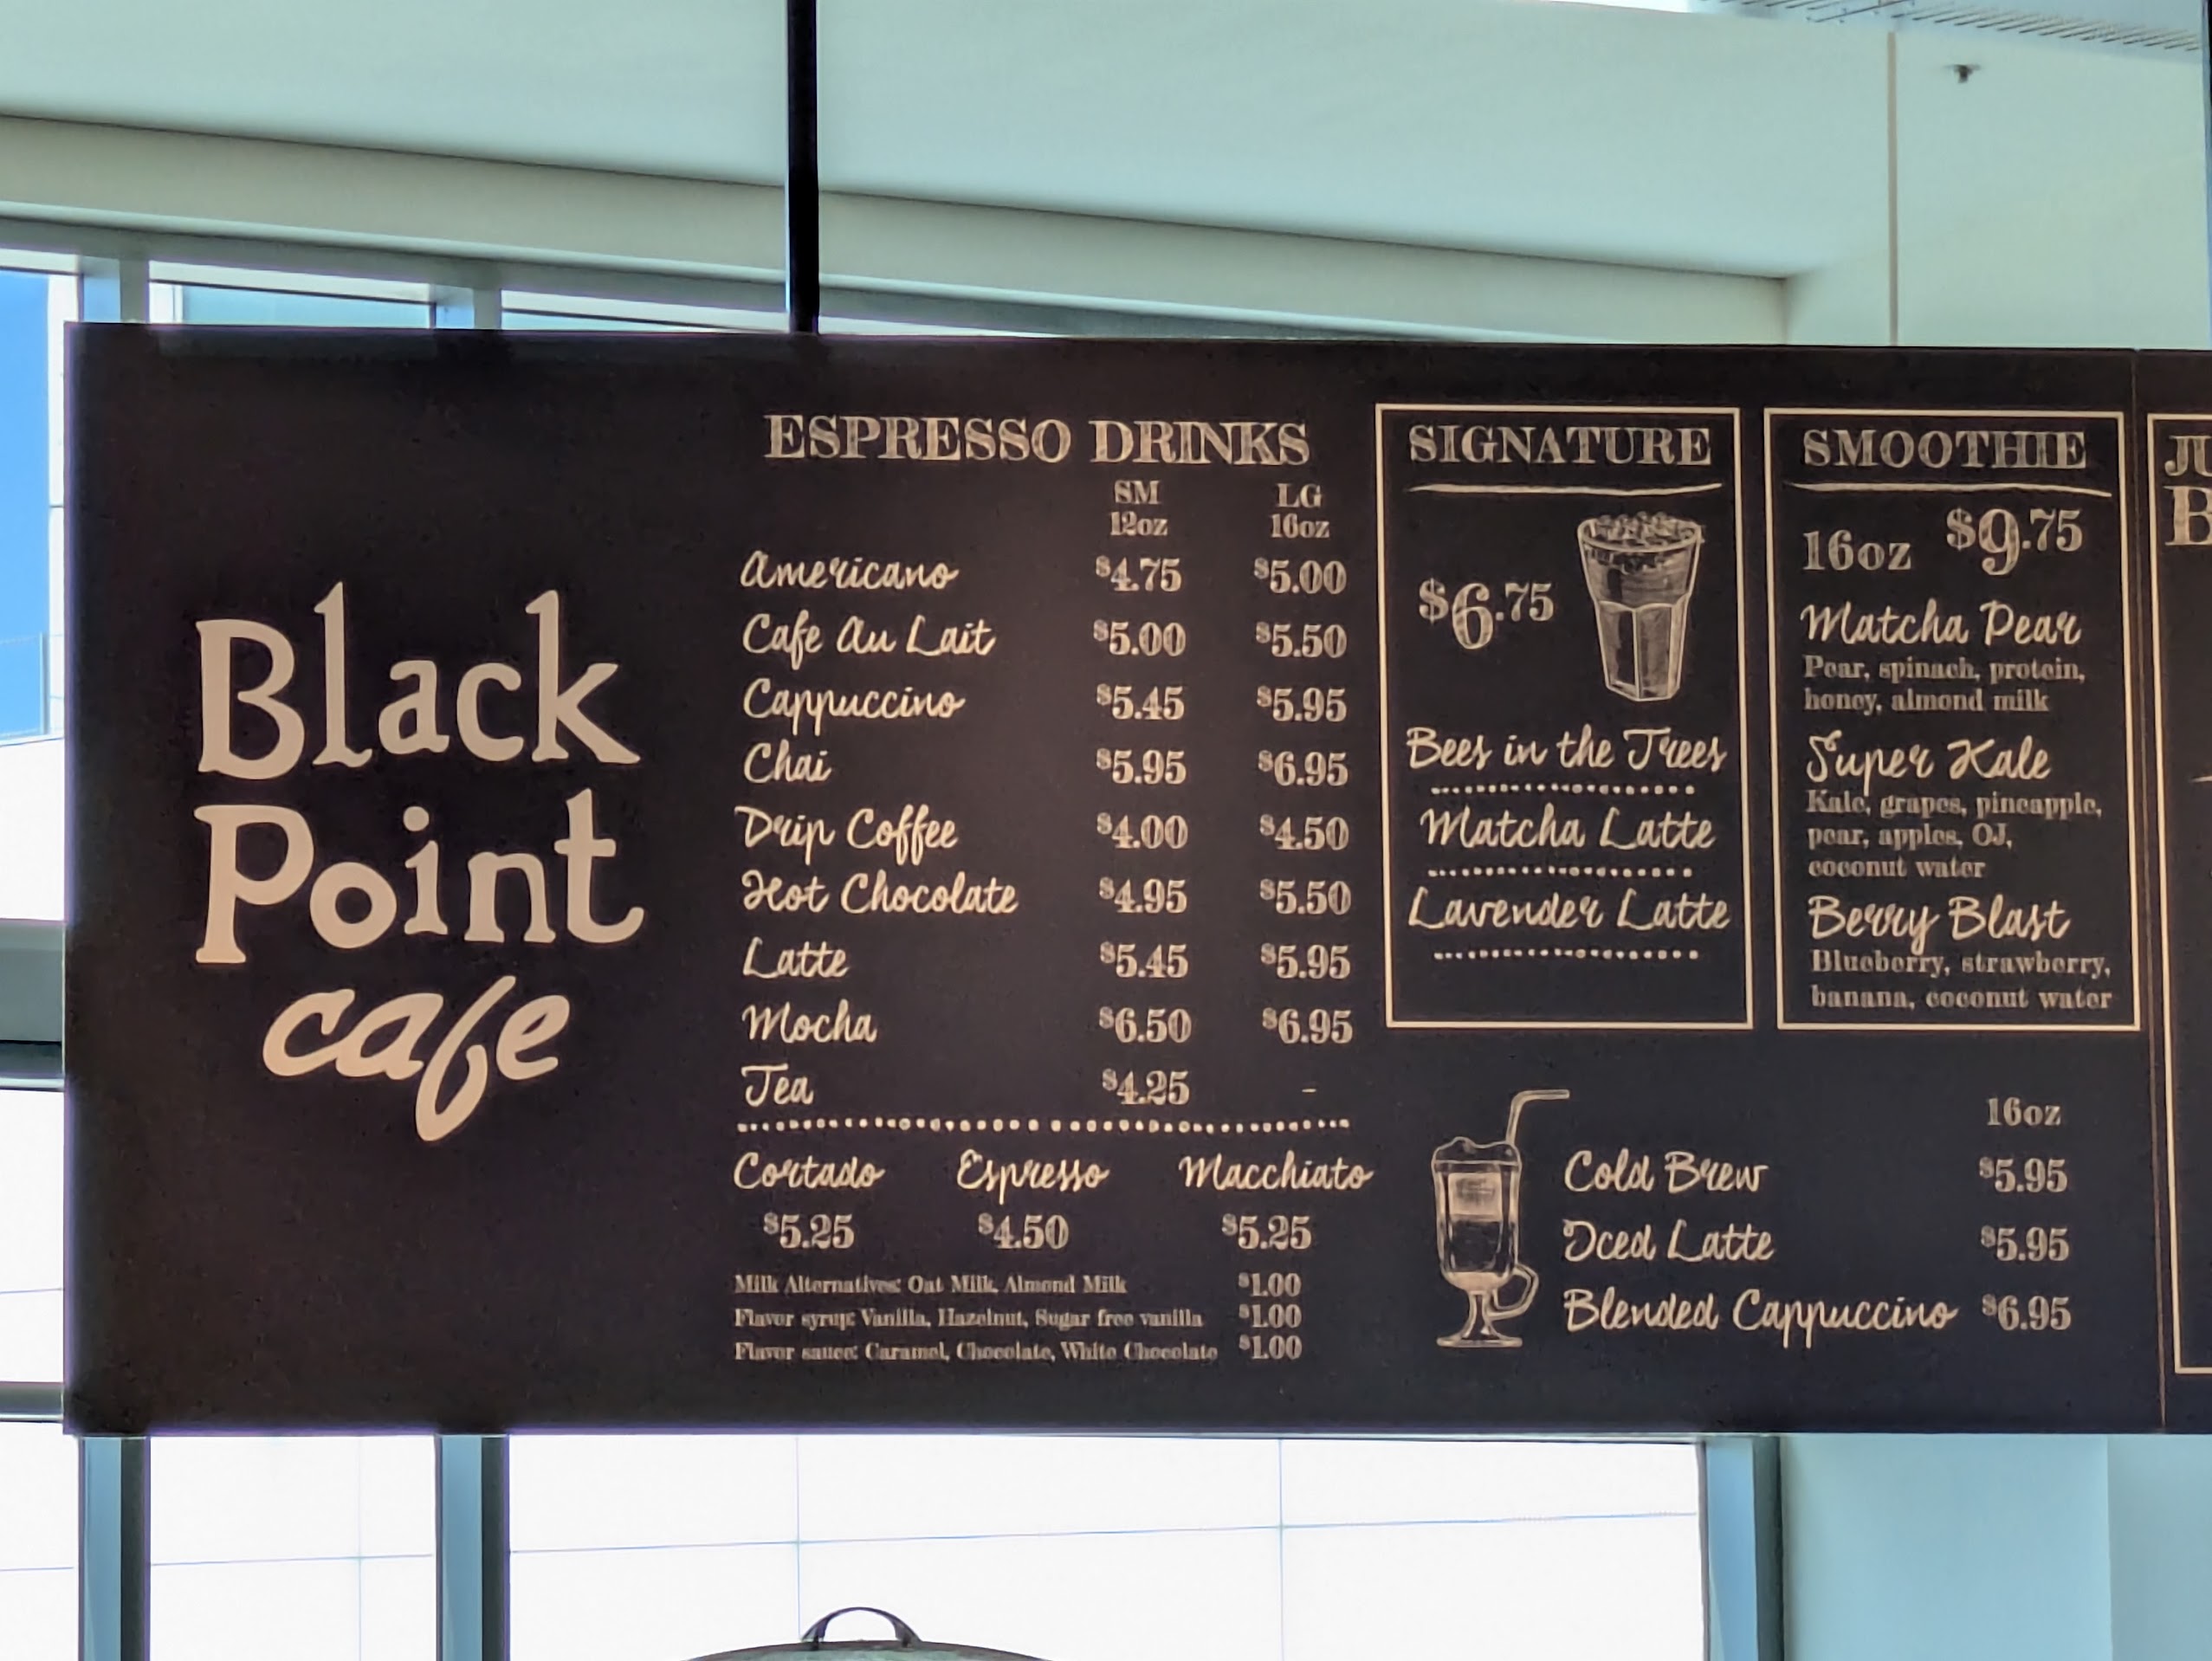 Black
Point
cafe
ESPRESSO DRINKS
SM LG
12oz 16oz
Americano $4.75 $5.00
Cafe Au Lait $5.00 $5.50
Cappuccino $5.45 $5.95
Chai $5.95 $6.95
Drip Coffee $4.00 $4.50
Hot Chocolate $4.95 $5.50
Latte $5.45 $5.95
Mocha $6.50 $6.95
Tea $4.25 -
Cortado Espresso Macchiato
$5.25 $4.50 $5.25
Milk Alternatives: Oat Milk, Almond Milk $1.00
Flavor syrup: Vanilla, Hazelnut, Sugar free vanilla $1.00
Flavor sauce: Caramel, Chocolate, White Chocolate $1.00
SIGNATURE
$6.75
Bees in the Trees
Matcha Latte
Lavender Latte
SMOOTHIE
16oz $9.75
Matcha Pear
Pear, spinach, protein,
honey, almond milk
Super Kale
Kale, grapes, pineapple,
pear, apples, OJ,
coconut water
Berry Blast
Blueberry, strawberry,
banana, coconut water
16oz
Cold Brew $5.95
Iced Latte $5.95
Blended Cappuccino $6.95
JU
B